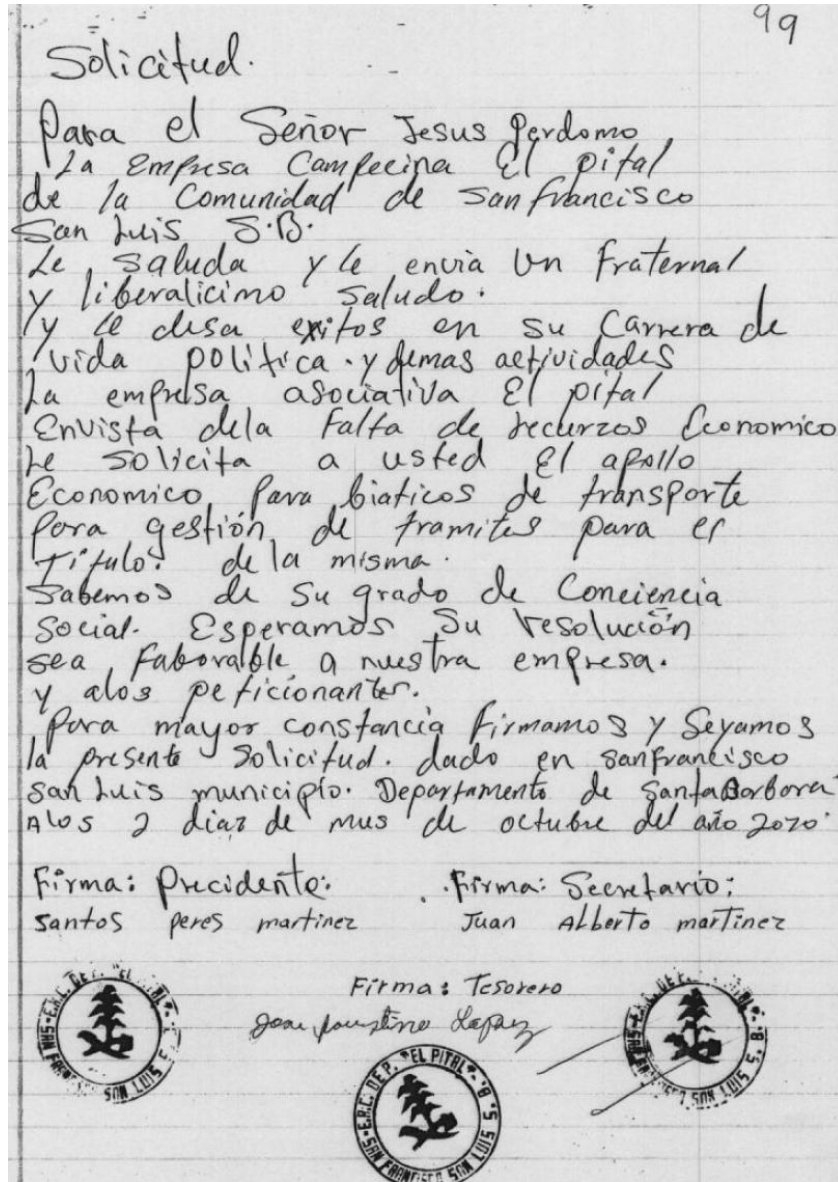 99
Solicitud.
Para el Señor Jesus Perdomo
La Empresa Campecina El pital
de la Comunidad de San francisco
San Luis S.B.
Le saluda y le envia Un fraternal
y liberalicimo saludo.
y le desa exitos en su Carrera de
vida politica. y demas actividades
La empresa asociativa El pital
Envista dela Falta de recurzos Economico
Le solicita a usted El apollo
Economico para biaticos de transporte
para gestión de tramites para el
Titulo. de la misma.
Sabemos de su grado de Conciencia
Social. Esperamos Su resolución
sea faborable a nuestra empresa.
y alos peticionantes.
para mayor constancia firmamos y Seyamos
la presente solicitud. dado en sanfrancisco
san Luis municipio. Departamento de SantaBarbara
Alos 2 diaz de mes de octubre del año 2020.
Firma: Precidente. .Firma: Secretario:
Santos peres martinez Juan Alberto martinez
Firma: Tesorero
faustino
E.R.C. DE P. "EL PITAL"
SAN FRANCISCO SAN LUIS S.B.